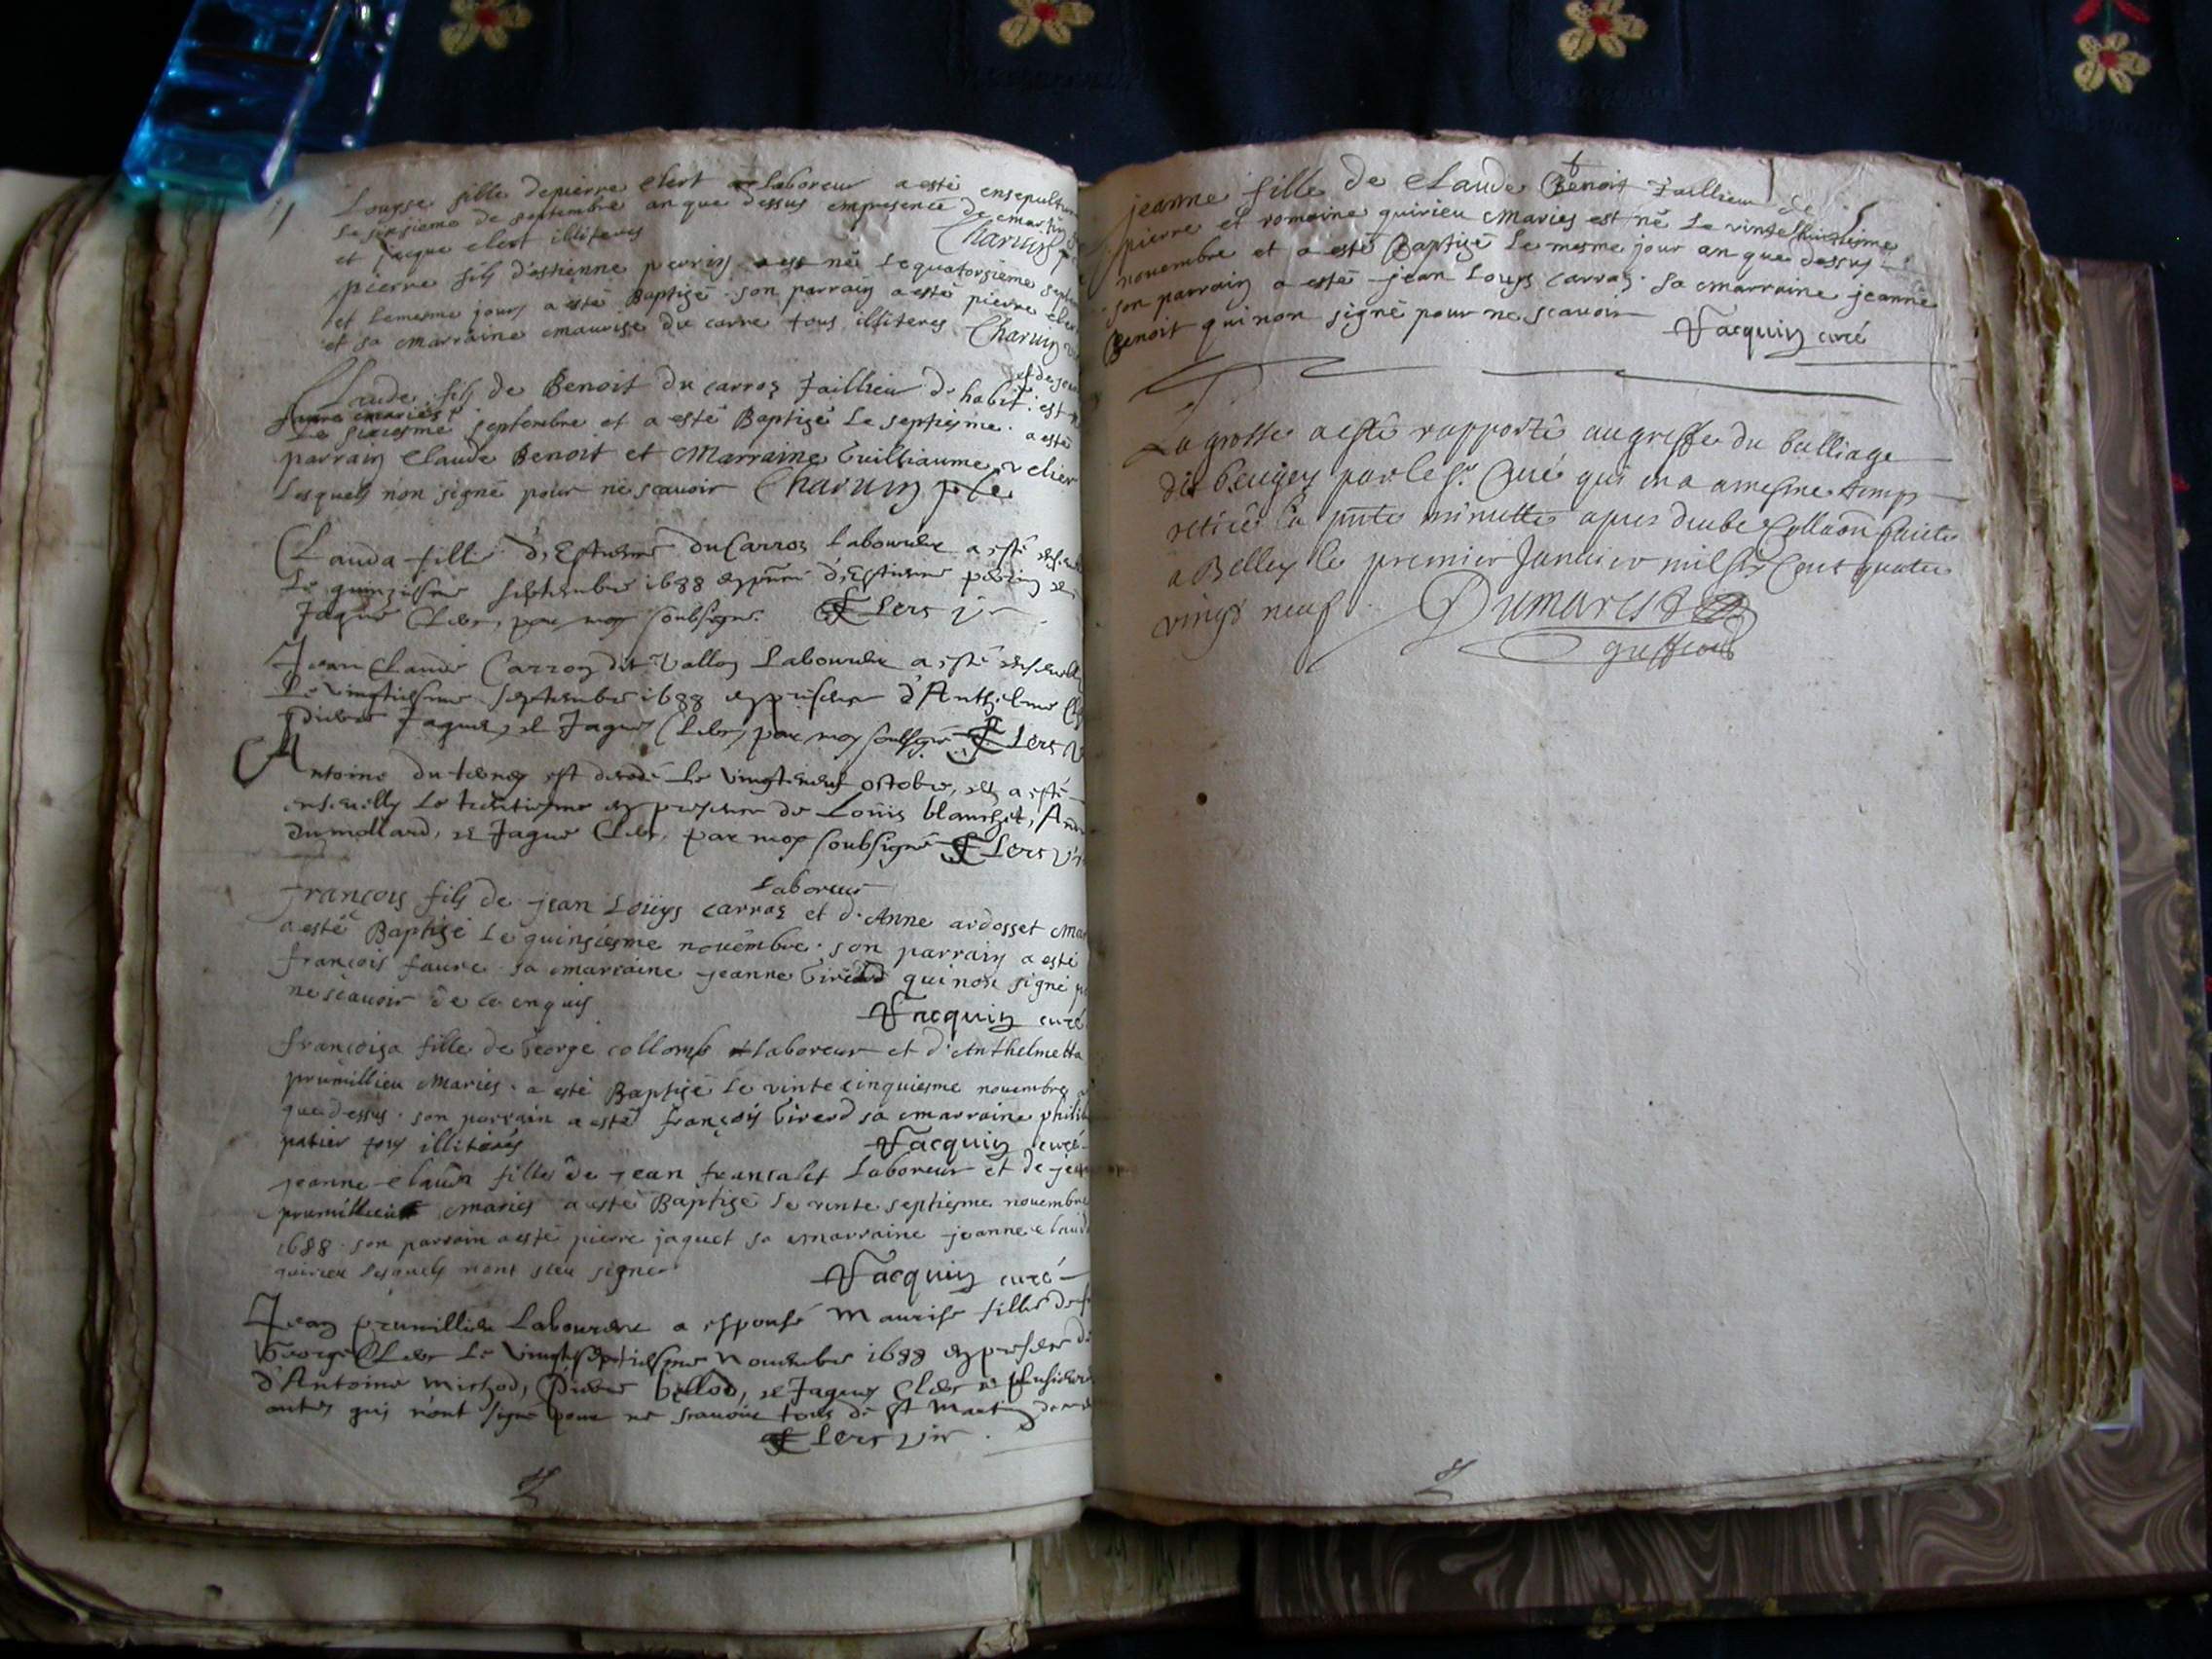 Louyse fille de pierre clert laboreur a esté ensepulture
le sesiesme de septembre an que dessus empresence de martin
et jacque clert illiteres Charuin
pierre filz d'estienne perrin est né le quatorsieme septem
et lemesme jours a esté Baptizé son parrain a esté pierre cler
et sa marraine maurise du carre tous illiteres Charuin
Claude filz de Benoit du carroz Taillieur d'habit: est né
le sixiesme septembre et a esté Baptizé le septiesme a esté
parrain Claude Benoit et Marraine Guilliaume
lesquels non signé pour ne scavoir Charuin ptre
Clauda fille d'Estienne du Carroz Laboureur a esté
le quinziesme septembre 1688 d'Estienne perrin et
Jaques Cler, par moy soubsigné. Lers
Jean Claude Carroz dit Valloz Laboureur a esté
le vingtiesme septembre 1688 en presence d'Anthelme
Jaques, et Jaques Cler, par moy soubsigné Lers
Antoine est decedé le vingtneuf octobre, et a esté
ensevelly le trentiesme en presence de Loüis blanchet,
dumollard, et Jaques Cler, par moy soubsigné Lers
Laboreur
françois filz de jean Loüys carroz et d'Anne ardosset ma
a esté Baptizé le quinsiesme novembre son parrain a esté
françois faure sa marraine jeanne Girerd qui non signé p
ne scavoir de ce enquis
Jacquin curé
françoisa fille de George collomb laboreur et d'Anthelmetta
prumillieu Mariés a esté Baptizé le vinte cinquiesme novembre
que dessus son parrain a esté françois Girerd sa marraine phili
patier tous illiteres Jacquin curé
jeanne clauda fille de jean francalet Laboreur et de jea
prumillieu mariés a esté Baptizé le vinte septiesme novembre
1688 son parrain a esté pierre jaquet sa marraine jeanne claud
quirieu lesquels nont sceu signer
Jacquin curé
Jean prumillieu Laboureur a espousé Maurise fille de
George Cler le vingtseptiesme Novembre 1688 en presence
d'Antoine Michod, Pierre billod, et Jaques Cler et plusieurs
autres qui n'ont signé pour ne scavoir tous de St Martin
Lers
jeanne fille de Claude Benoit Taillieur de
pierre et romaine quirieu Mariés est né le vintehuictiesme
novembre et a esté Baptizé le mesme jour an que dessus
son parrain a esté jean Louys carroz sa marraine jeanne
Benoit qui non signé pour ne scavoir
Jacquin curé
La grosse a esté rapporté au greffe du balliage
de beugey par le sr. Curé qui en a amesme temps
retiré la pnte minutte apres deube Collaõn faicte
a Belley le premier Janvier mil six Cent quatre
vingt neuf. Dumarest
greffier